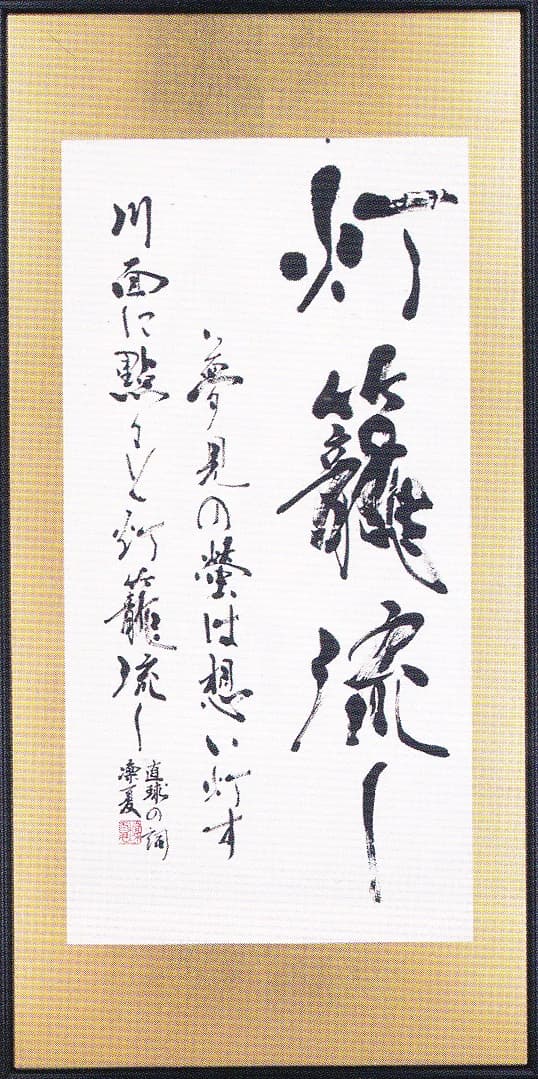 灯籠流し
夢見の螢は想い灯す
川面に點々と灯籠流し
直球の詞
凛夏